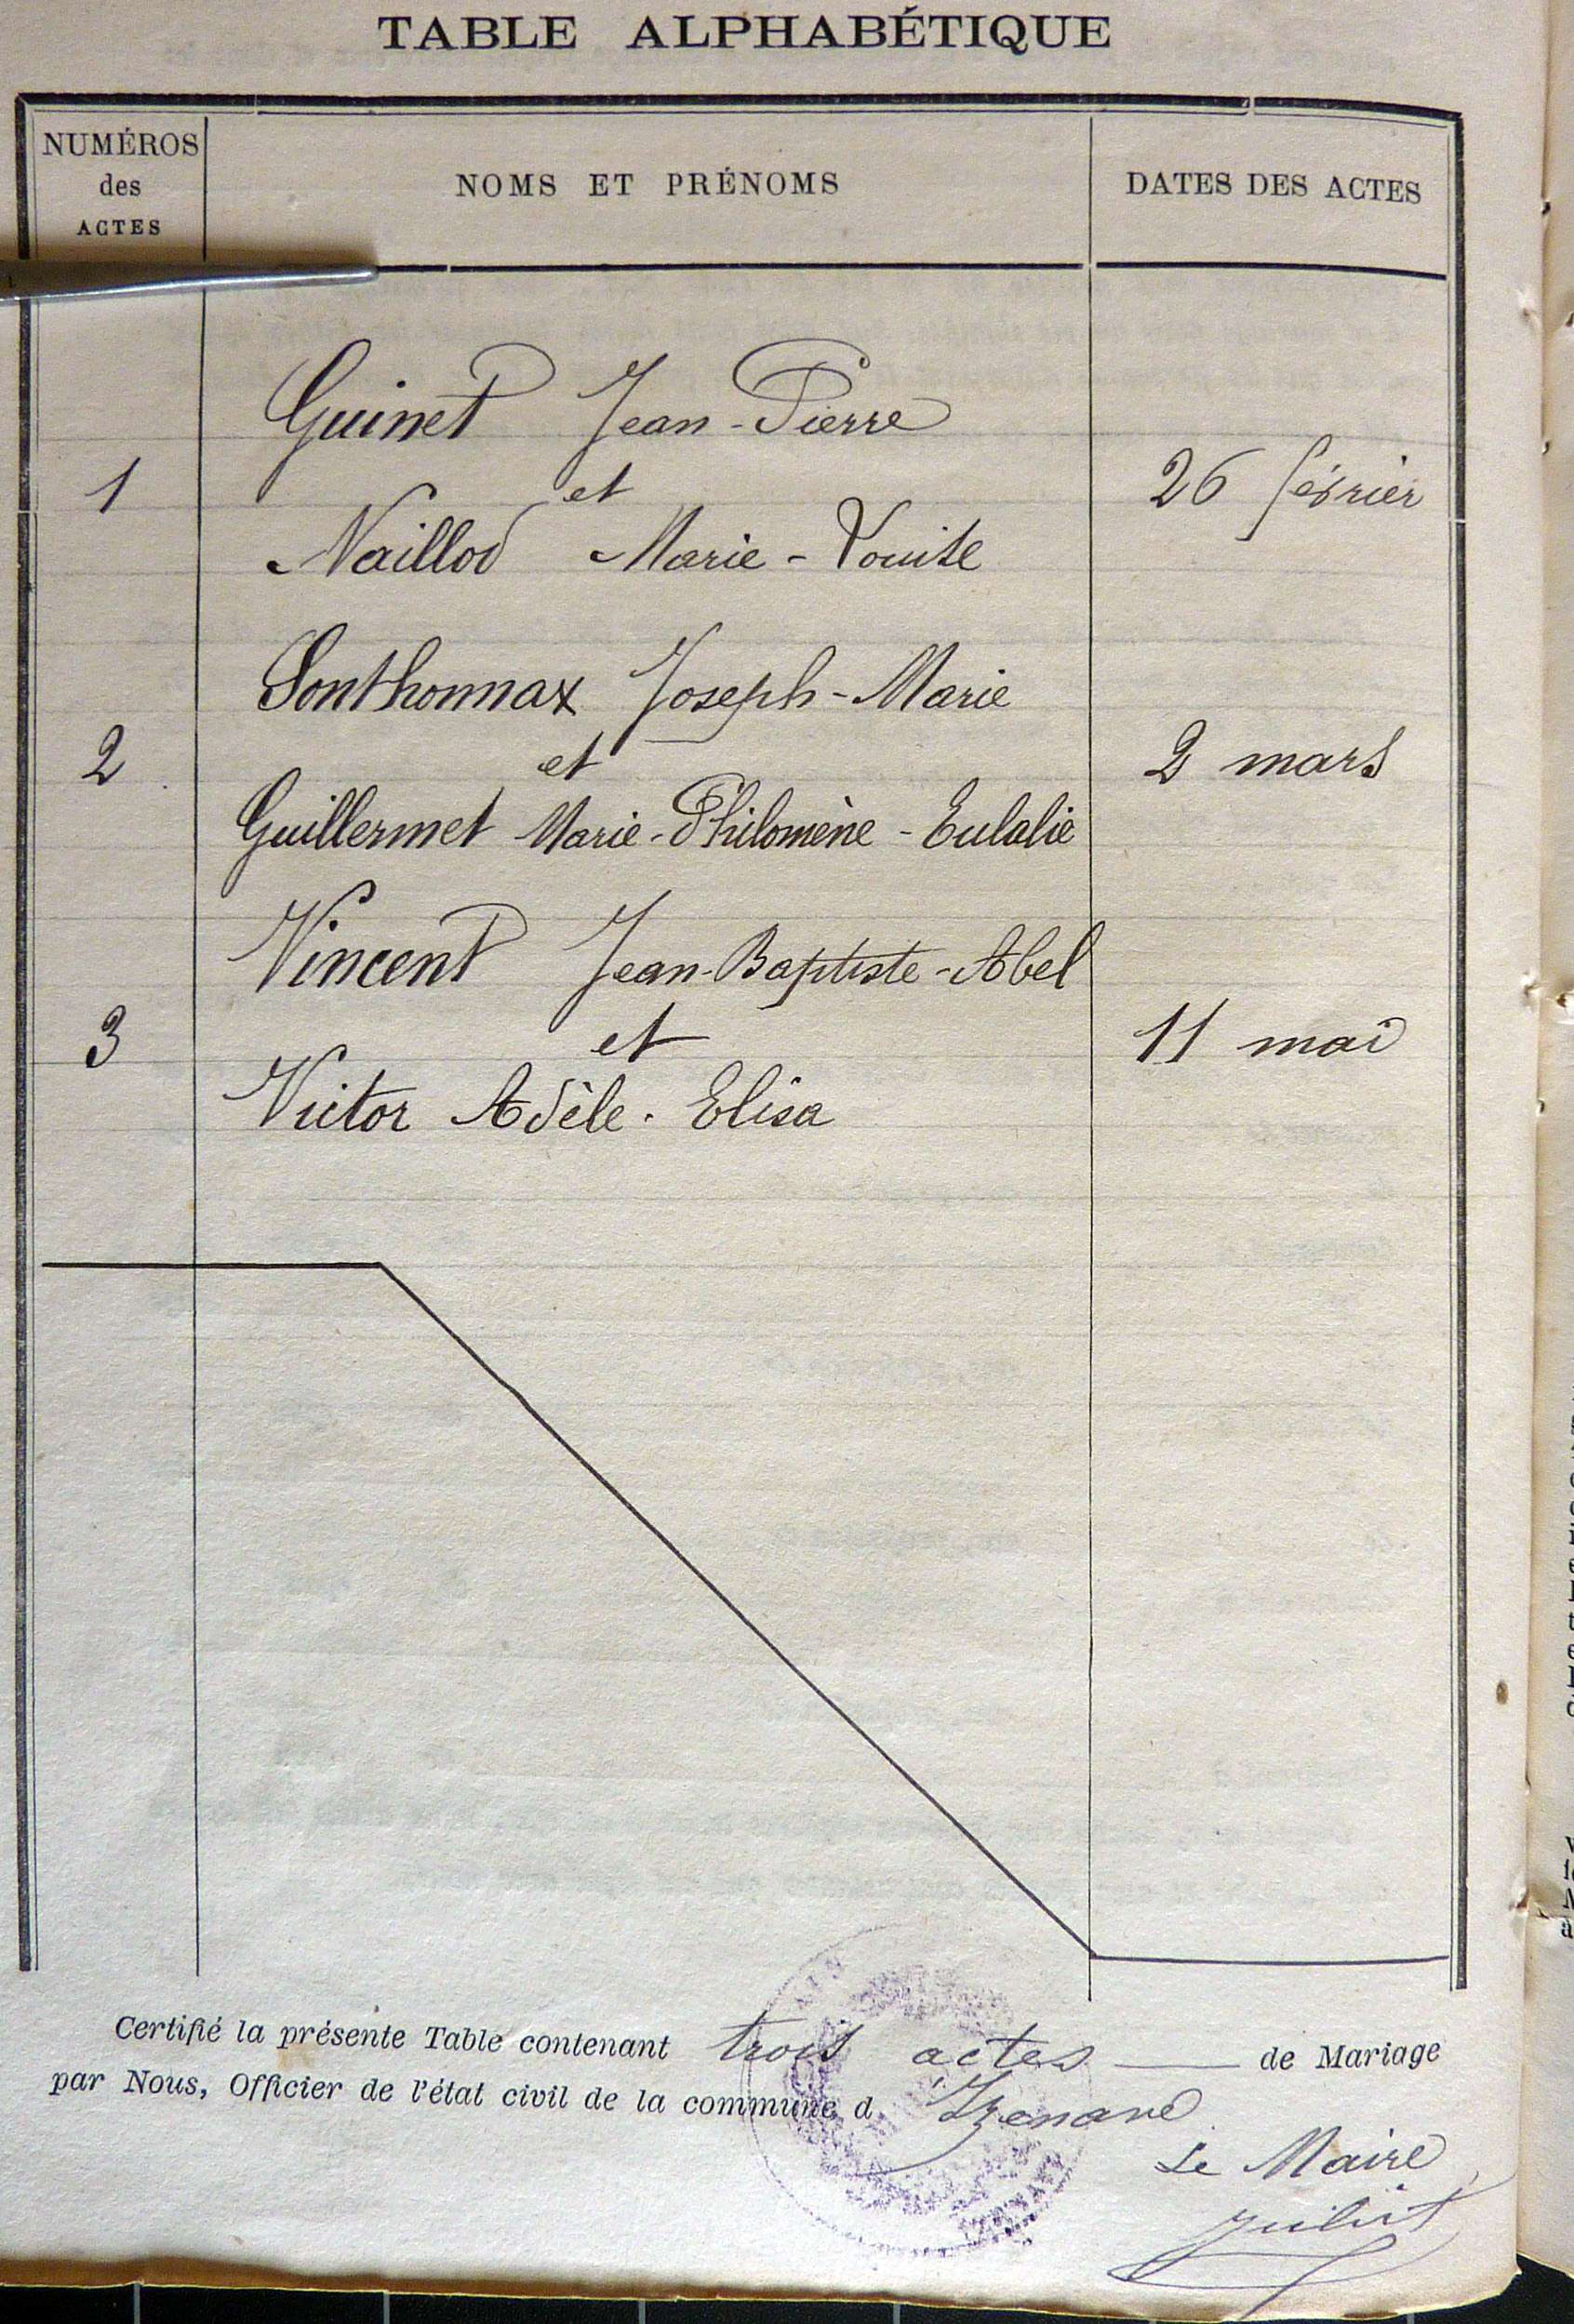 TABLE ALPHABÉTIQUE
NUMÉROS des ACTES
NOMS ET PRÉNOMS
DATES DES ACTES
Guinet Jean-Pierre
1 et 26 février
Naillod Marie-Louise
Sonthonnax Joseph-Marie
2 et 2 mars
Guillermet Marie-Philomène-Eulalie
Vincent Jean-Baptiste-Abel
3 et 11 mai
Victor Adèle-Elisa
Certifié la présente Table contenant trois actes de Mariage
par Nous, Officier de l'état civil de la commune d'Izenave
Le Maire